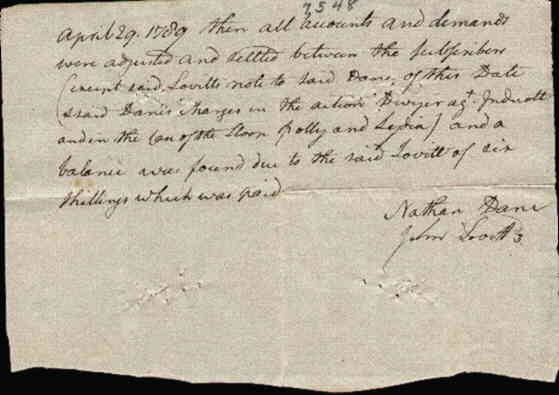 7548
April 29. 1789 then all accounts and demands
were adjusted and settled between the subscribers
(except said Lovitts note to said Dane, of this Date
& said Dane's charges in the action Dwyer agt.
and in the Case of the Sloop Polly and Lydia) and a
balance was found due to the said Lovitt of six
shillings which was paid
Nathan Dane
John Lovitt 3